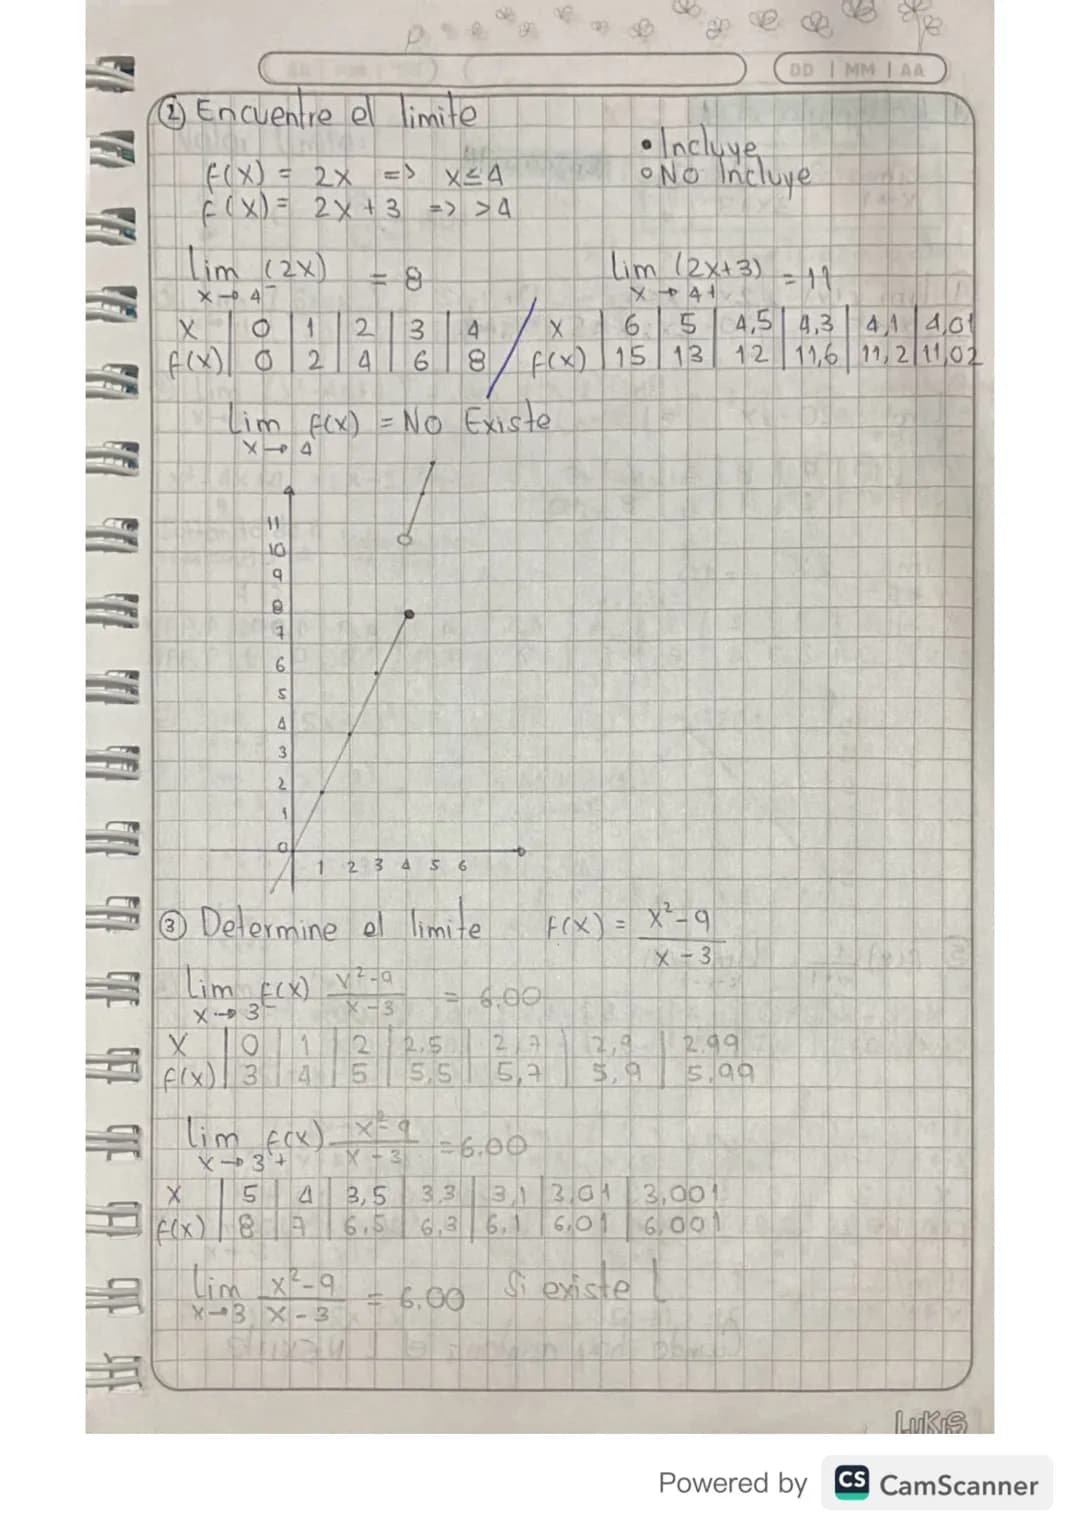 DD | MM | AA
② Encuentre el limite
• Incluye
○ No Incluye
f(x) = 2x => x≤4
f(x) = 2x + 3 => >4
Lim (2x) = 8
x→4⁻
Lim (2x+3) = 11
x→4+
x | 0 | 1 | 2 | 3 | 4
f(x) | 0 | 2 | 4 | 6 | 8
x | 6 | 5 | 4,5 | 4,3 | 4,1 | 4,01
f(x) | 15 | 13 | 12 | 11,6 | 11,2 | 11,02
Lim f(x) = No Existe
x→4
11
10
9
8
7
6
5
4
3
2
1
0
1 2 3 4 5 6
③ Determine el limite f(x) = x²-9
x - 3
Lim f(x) x²-9 = 6.00
x→3⁻ x-3
x | 0 | 1 | 2 | 2,5 | 2,7 | 2,9 | 2.99
f(x) | 3 | 4 | 5 | 5,5 | 5,7 | 5,9 | 5,99
Lim f(x) x²-9 = 6.00
x→3+ x-3
x | 5 | 4 | 3,5 | 3,3 | 3,1 | 3,01 | 3,001
f(x) | 8 | 7 | 6,5 | 6,3 | 6,1 | 6,01 | 6,001
Lim x²-9 = 6.00 Si existe L
x→3 x-3
LuKas
Powered by CS CamScanner